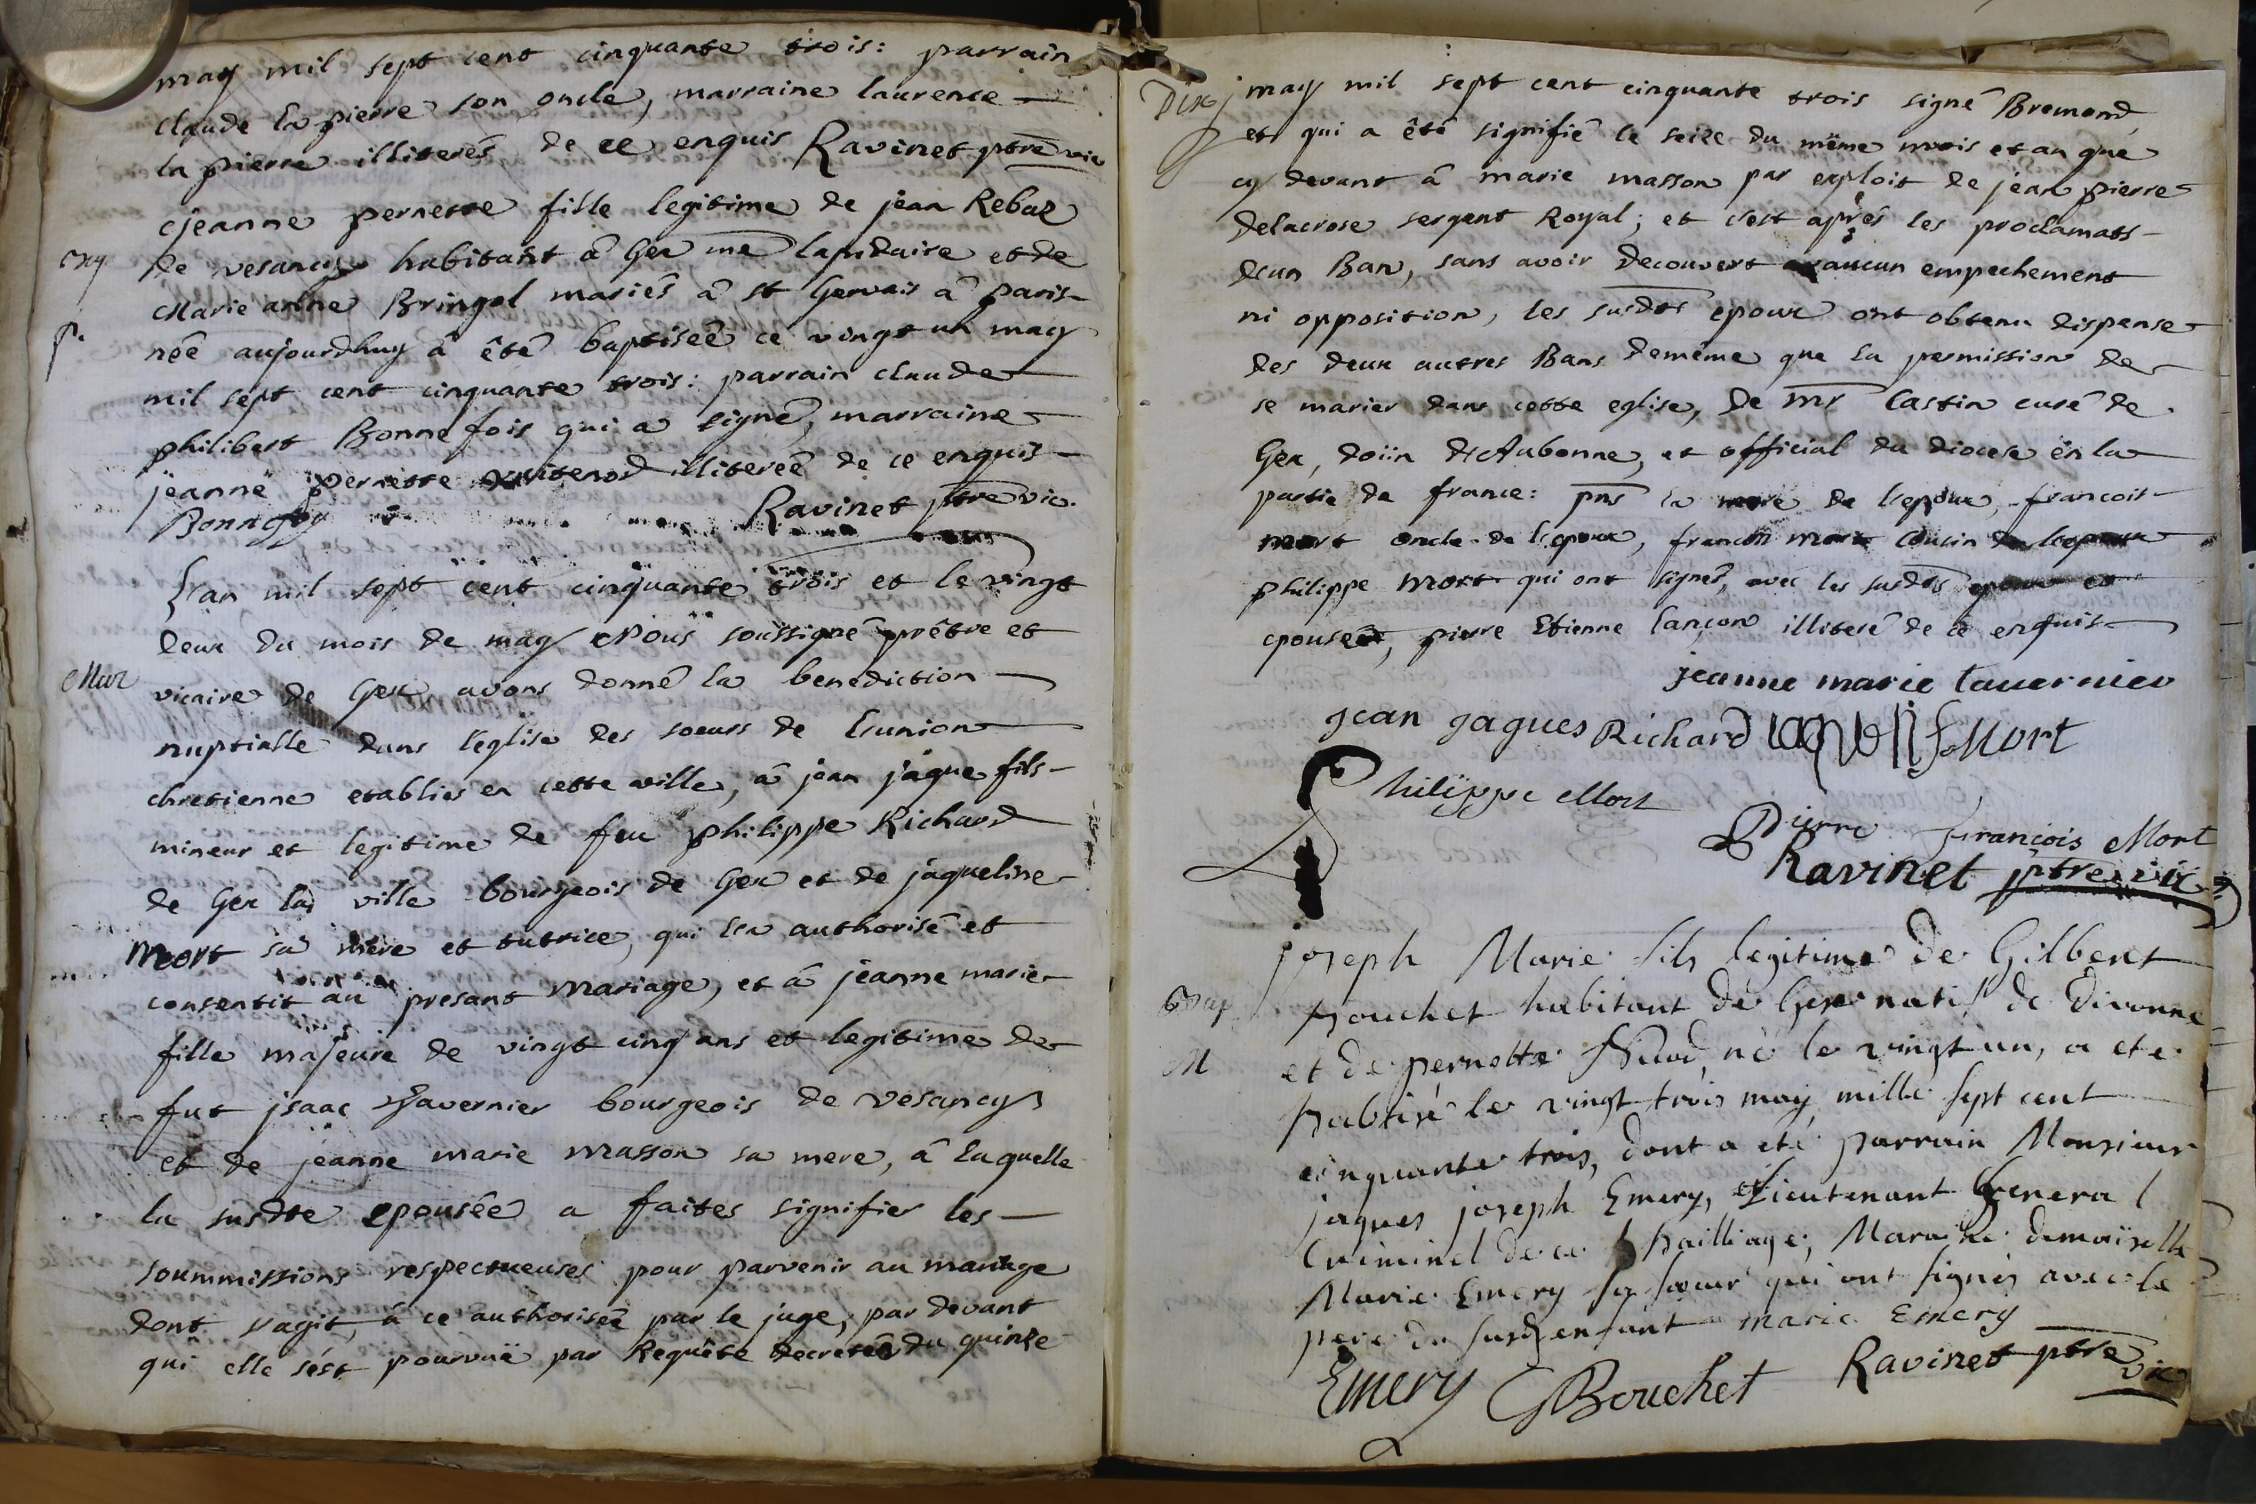 may mil sept cent cinquante trois: parrain
claude la pierre son oncle, marraine laurence
la pierre illiterés de ce enquis Ravinet ptre vic
jeanne pernette fille legitime de jean Rebaz
de vesancy habitant â Gex me lapidaire et de
Marie anne Bringol mariés â st Gervais â paris
née aujourdhuy â êtê baptisée ce vingt un may
mil sept cent cinquante trois: parrain claude
philibert Bonnefois qui a signé, marraine
jeanne pernette illiterée de ce enquis
Ravinet ptre vic.
L'an mil sept cent cinquante trois et le vingt
deux du mois de may Nous soussigné prêtre et
Mar
vicaire de Gex avons donné la benediction
nuptialle dans l'eglise des soeurs de l'union
chretienne etablies en cette ville, â jean jâque fils
mineur et legitime de feu philippe Richard
de Gex la ville bourgeois de Gex et de jâqueline
Mort sa mère et tutrice, qui l'a authorisé et
consentit au presant mariage, et â jeanne marie
fille majeure de vingt cinq ans et legitime de
fut jsaac Tavernier bourgeois de vesancy
et de jeanne marie masson sa mere, â laquelle
la susdte epousée a faites signifier les
soummissions respectueuses pour parvenir au mariage
dont s'agit, â ce authorisée par le juge, par devant
qui elle s'ést pourvuë par Requête decretée du quinze
may mil sept cent cinquante trois signé Bremond
et qui a êtê signifié le seize du même mois et an que
cy devant â marie masson par exploit de jean pierre
delacrose sergent Royal; et c'est aprés les proclamats
d'un Ban, sans avoir decouvert aucun empechement
ni opposition, les susdts epoux ont obtenu dispense
des deux autres Bans demême que la permission de
se marier dans cette eglise, de mr Castin curé de
Gex, doïin d'Aubonne, et official du diocese en la
partie de france: pns la mere de l'epoux, francois
mort oncle de l'epoux, francois mort cousin de l'epoux
philippe Mort qui ont signés avec les susdts epoux et
epousée, pierre Etienne lançon illiteré de ce enquis
jeanne marie tavernier
jean jaques Richard Mort
Philippe Mort
Pierre francois Mort
Ravinet ptre vic
joseph Marie fils legitime de Gilbert
Bap
bouchet habitant de Gex natif de Divonne
M
et de pernette né le vingt un, a ete
babtisé le vingt trois may mille sept cent
cinquante trois, dont a eté parrain Monsieur
jaques joseph Emery, Lieutenant General
Criminel de ce Bailliage, Maraine demoiselle
Marie Emery sa soeur qui ont signés avec le
pere du susd enfant marie Emery
Emery GBouchet Ravinet ptre
vic